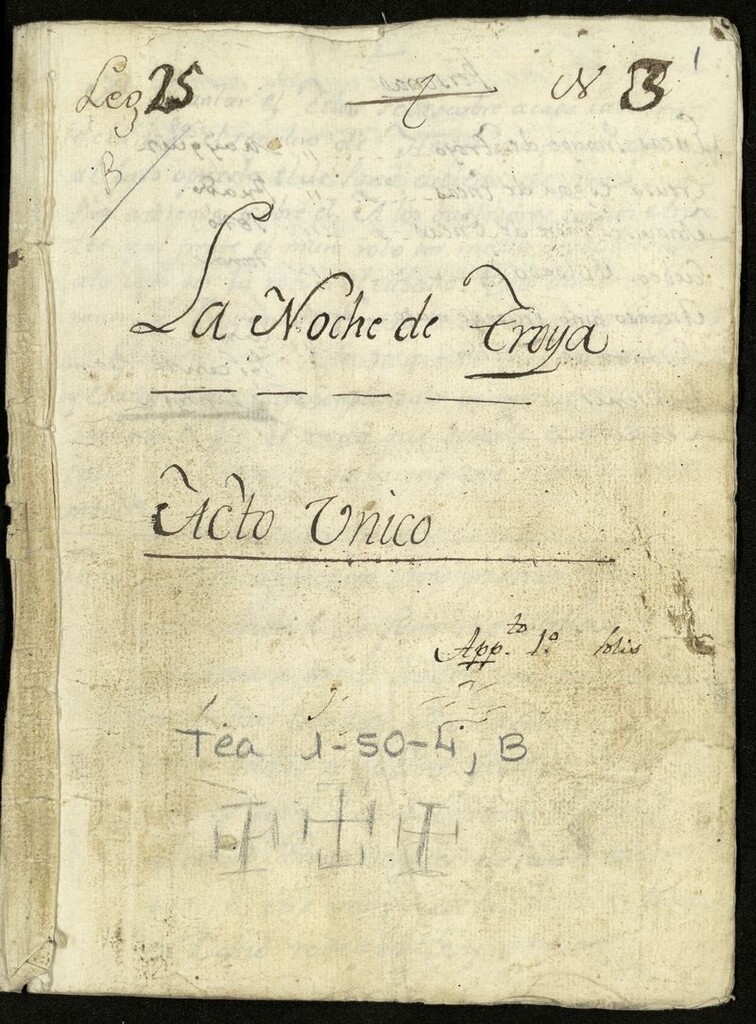 Leg 25 N 3 1
B
La Noche de Troya
Acto Vnico
App.to 1º
Tea 1-50-4, B